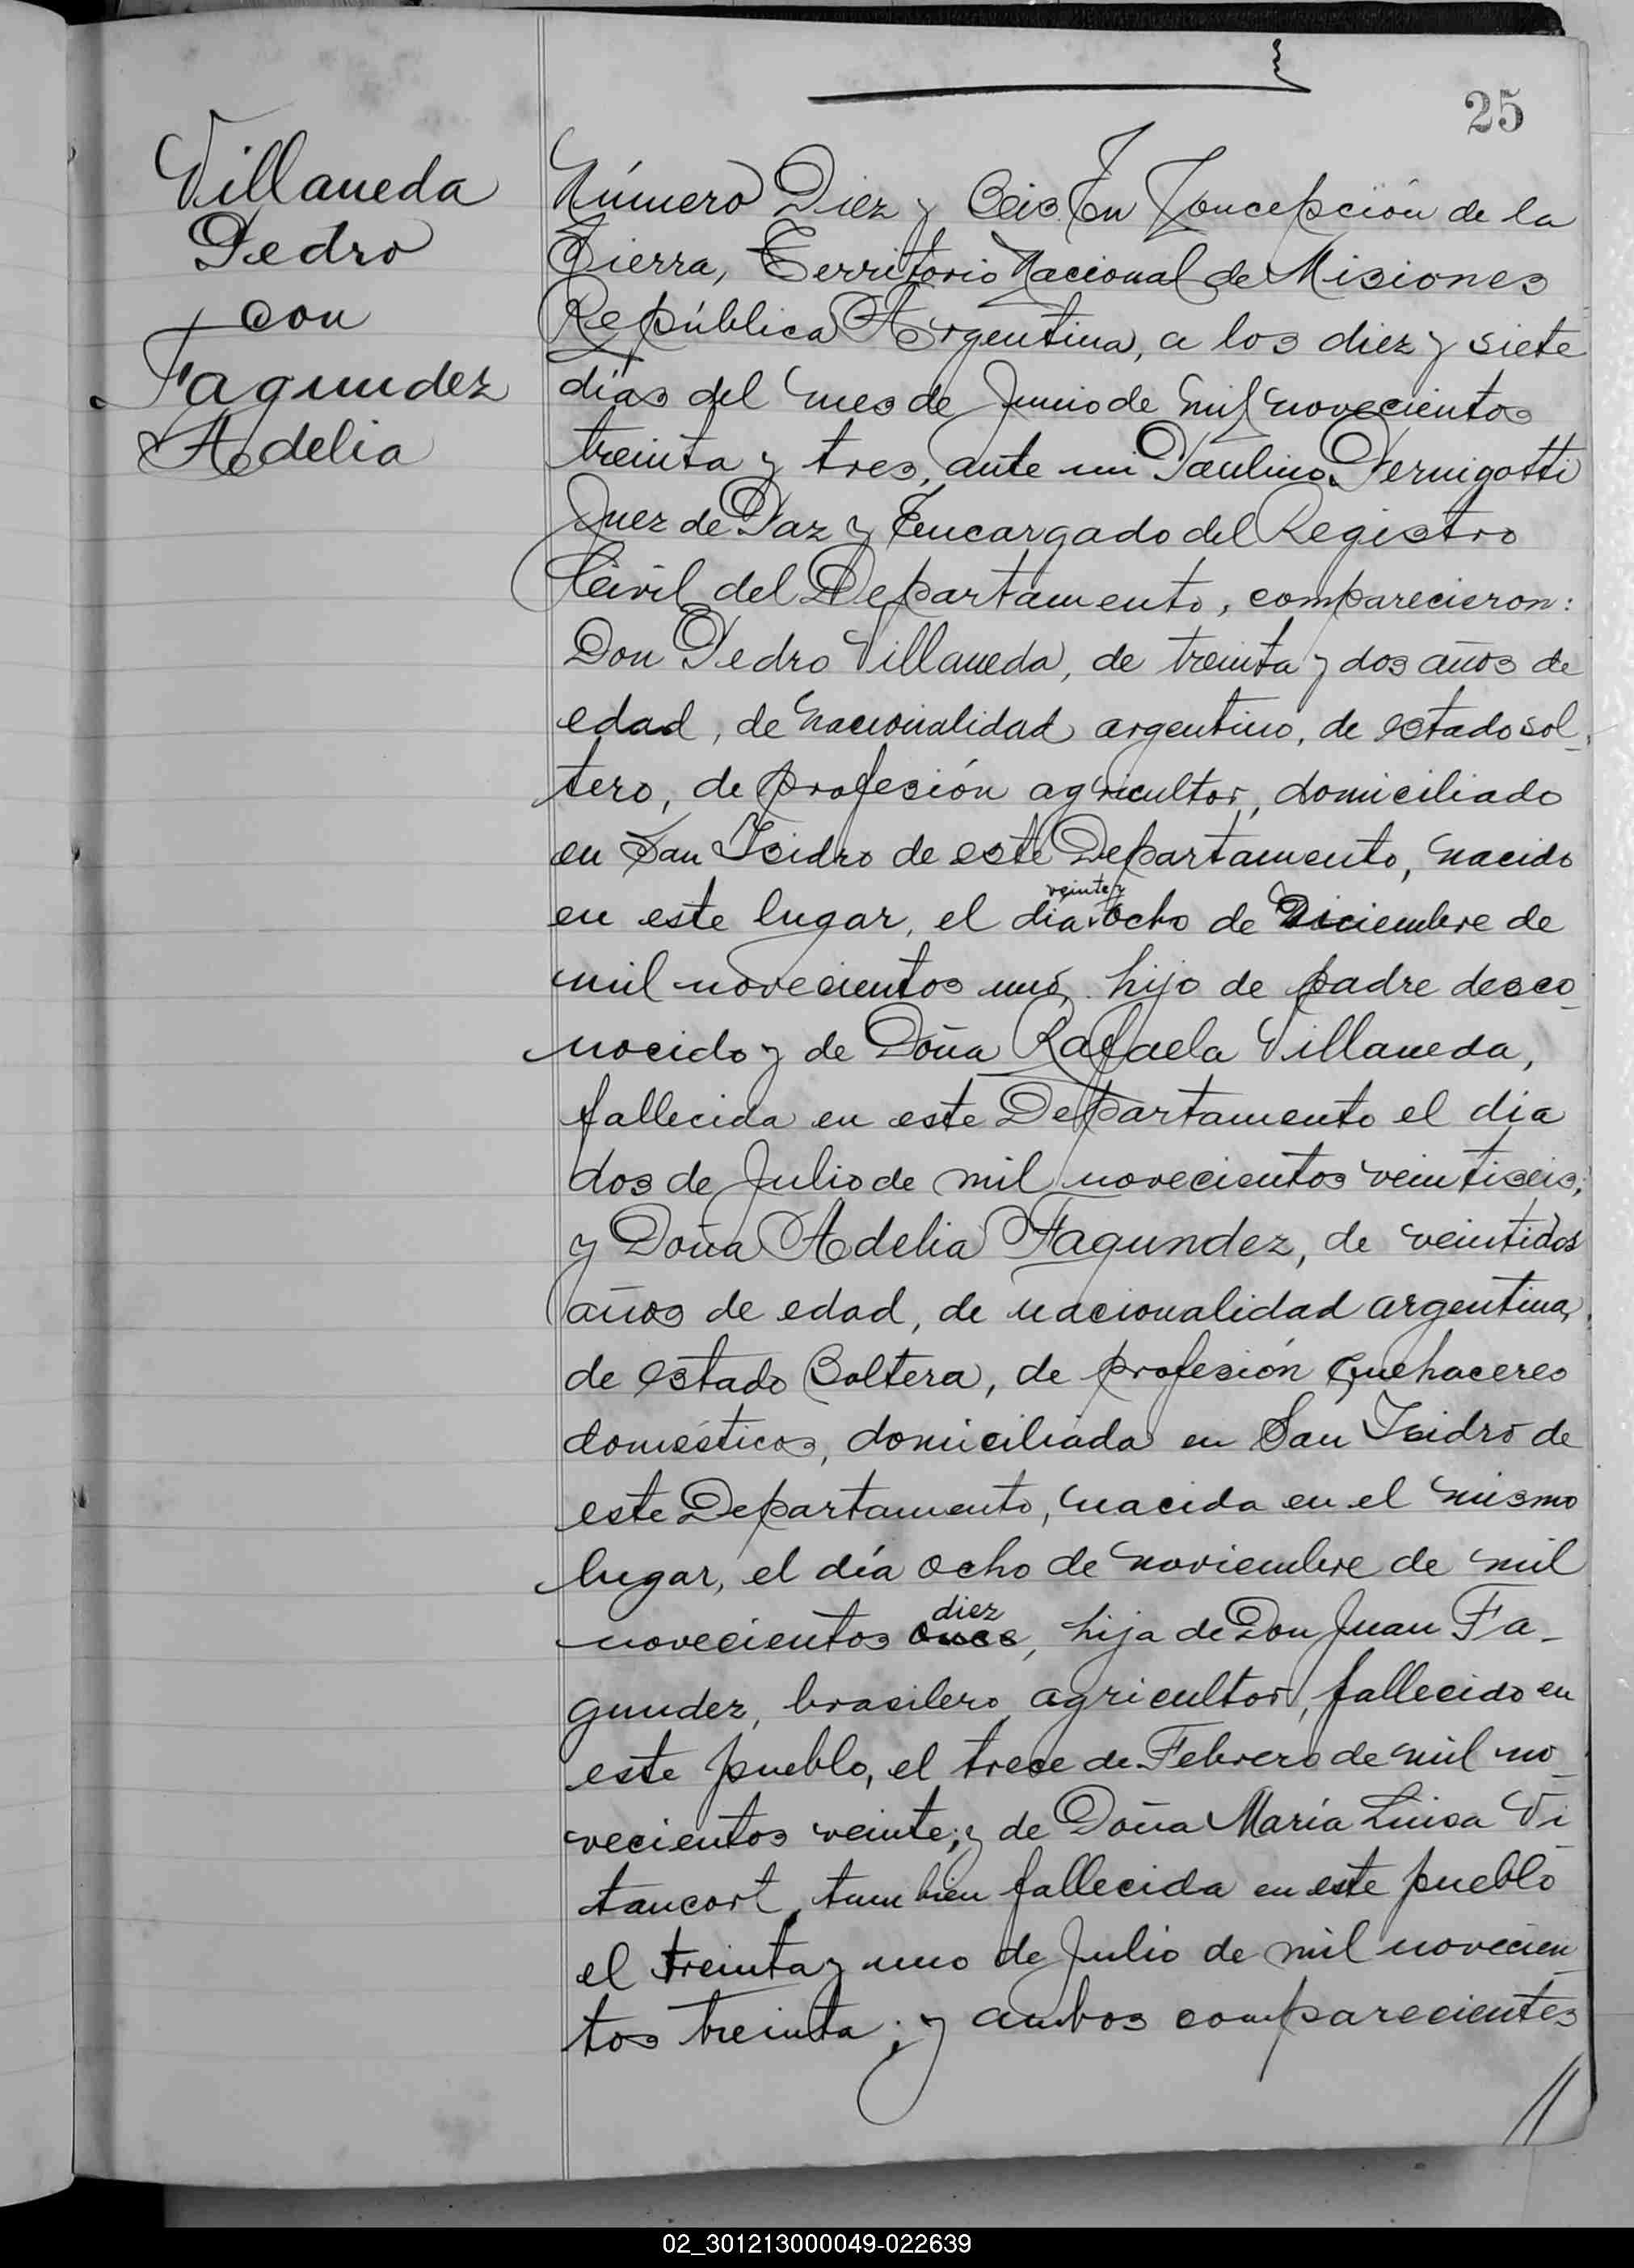 25
Villaneda
Pedro
con
Fagundez
Adelia
Número Diez y Seis. En Concepción de la
Sierra, Territorio Nacional de Misiones
República Argentina, a los diez y siete
días del mes de Junio de mil novecientos
treinta y tres, ante mi Paulino Pernigotti
Juez de Paz y Encargado del Registro
Civil del Departamento, comparecieron:
Don Pedro Villaneda, de treinta y dos años de
edad, de nacionalidad argentino, de estado sol-
tero, de profesión agricultor, domiciliado
en San Isidro de este Departamento, nacido
veinte y
en este lugar, el dia ocho de Diciembre de
mil novecientos uno, hijo de padre desco-
nocido y de Doña Rafaela Villaneda,
fallecida en este Departamento el dia
dos de Julio de mil novecientos veintiseis;
y Doña Adelia Fagundez, de veintidos
años de edad, de nacionalidad argentina,
de estado Soltera, de profesión quehaceres
domésticos, domiciliada en San Isidro de
este Departamento, nacida en el mismo
lugar, el día ocho de noviembre de mil
diez
novecientos once, hija de Don Juan Fa-
gundez, brasilero, agricultor, fallecido en
este pueblo, el trece de Febrero de mil no-
vecientos veinte; y de Doña María Luisa Vi-
tancort, tambien fallecida en este pueblo
el treinta y uno de Julio de mil novecien-
tos treinta; y ambos comparecientes
//
02_301213000049-022639